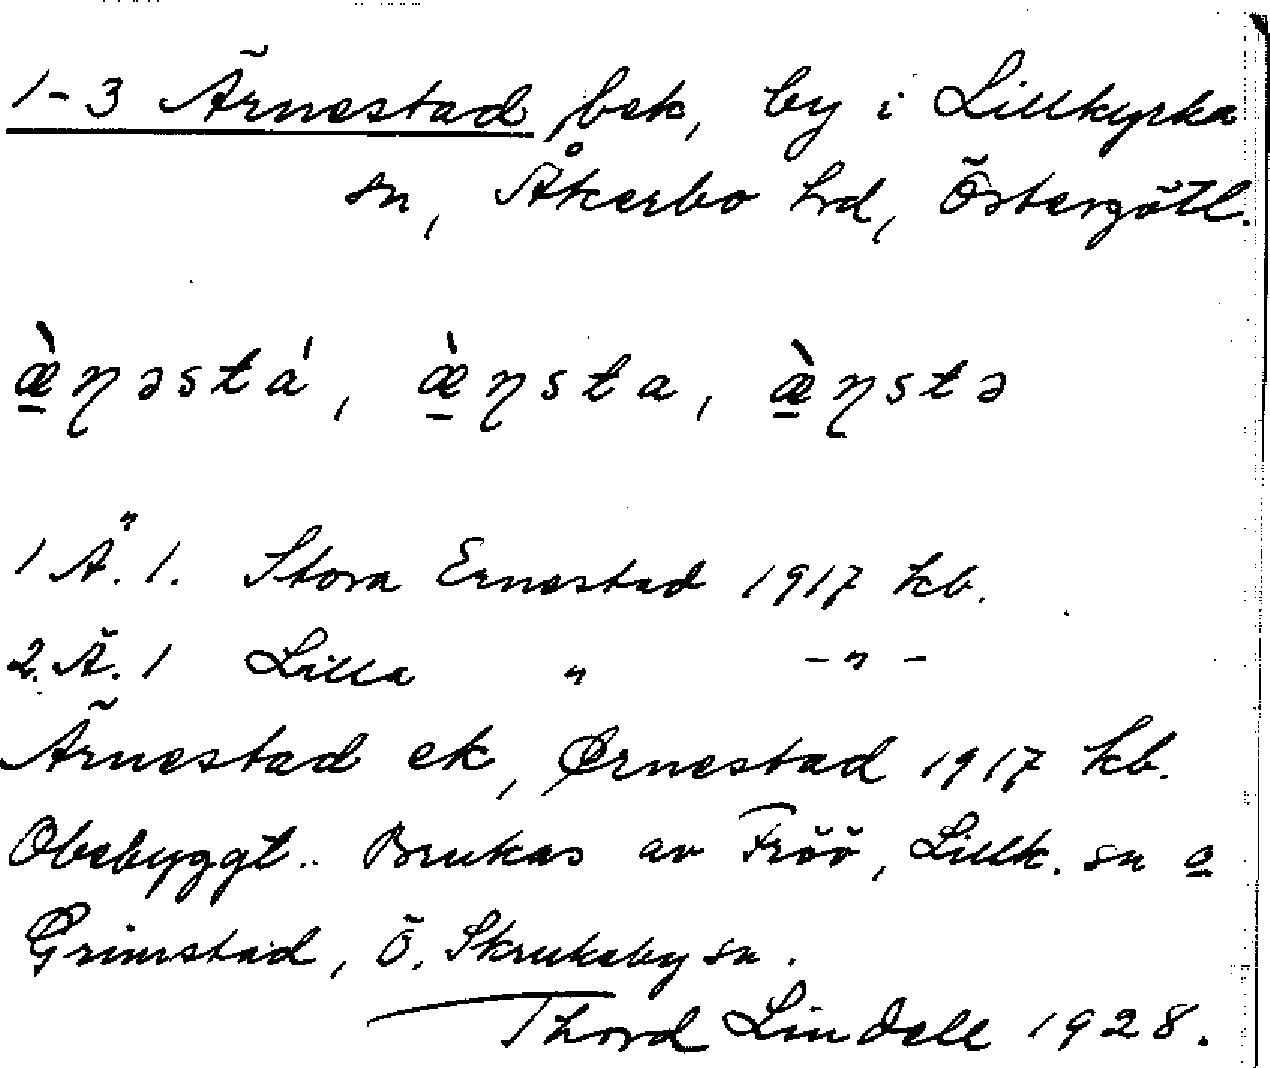 1-3 Ärnestad, bek, by i Lillkyrka
sn, Åkerbo hrd, Östergötl.
æ̠̀ɳəstá, æ̠̀ɳsta, æ̠̀ɳstə
1 Ä. 1. Stora Ernestad 1917 kb.
2. Ä. 1 Lilla " -"-
Ärnestad ek, Ørnestad 1917 kb.
Obebyggt.. Brukas av Fröö, Lillk. sn o
Grimstad, Ö. Skrukeby sn.
Thord Lindell 1928.